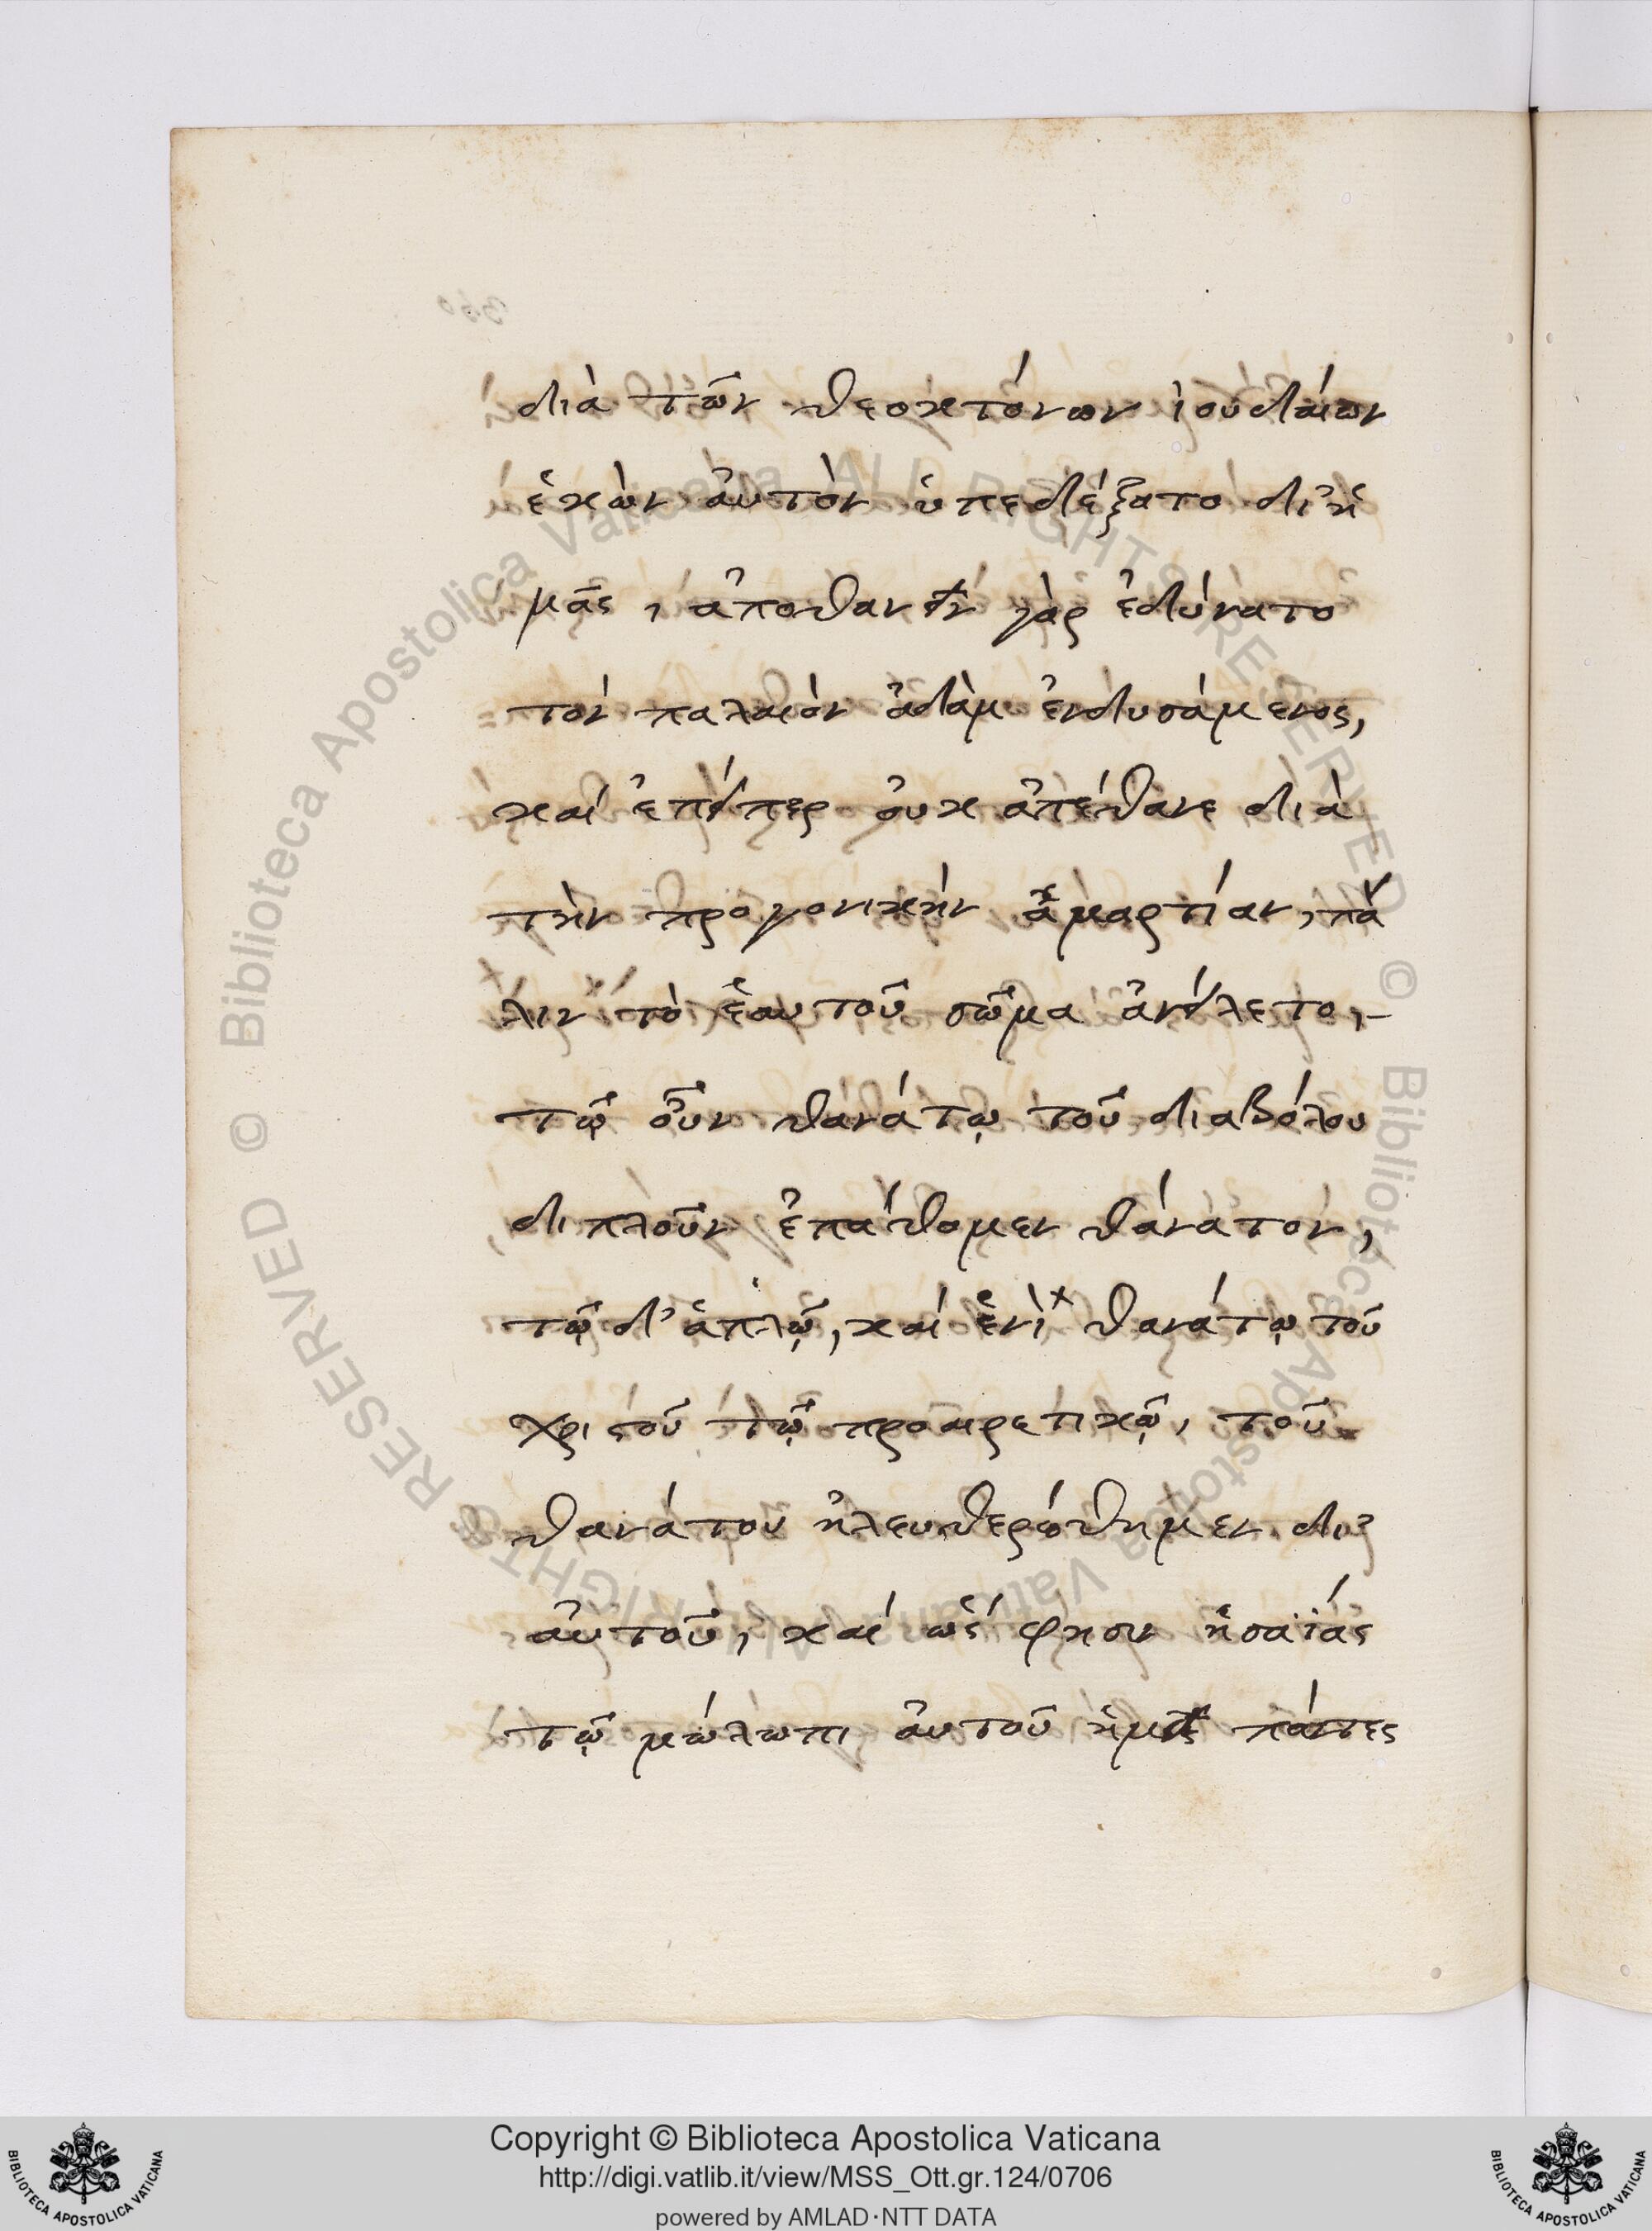 διὰ τῶν θεοκτόνων ἰουδαίων
ἑκὼν ἀυτὸν ὑπεδέξατο δι' ἡ
μᾶς, ἀποθανεῖν γὰρ ἐδύνατο
τὸν παλαιὸν ἀδὰμ ἐνδυσάμενος,
καὶ ἐπείπερ ὀυκ ἀπέθανε διὰ
τὴν προγονικὴν ἁμαρτίαν, πά
λιν τὸ ἑαυτοῦ σῶμα ἀνείλετο,
τῷ οὖν θανάτῳ τοῦ διαβόλου
διπλοῦν ἐπάθομεν θάνατον,
τῷ δ' ἁπλῷ, καὶ ἑνὶ θανάτῳ τοῦ
χριστοῦ τῷ προαιρετικῷ, τοῦ
θανάτου ἠλευθερώθημεν δι'
ἀυτοῦ, καὶ ὥς φησιν ἡσαΐας
τῷ μώλωπι ἀυτοῦ ἡμεῖς πάντες
Copyright © Biblioteca Apostolica Vaticana
http://digi.vatlib.it/view/MSS_Ott.gr.124/0706
powered by AMLAD·NTT DATA
BIBLIOTECA APOSTOLICA VATICANA
BIBLIOTECA APOSTOLICA VATICANA
© Biblioteca Apostolica Vaticana ALL RIGHTS RESERVED
© Biblioteca Apostolica Vaticana ALL RIGHTS RESERVED